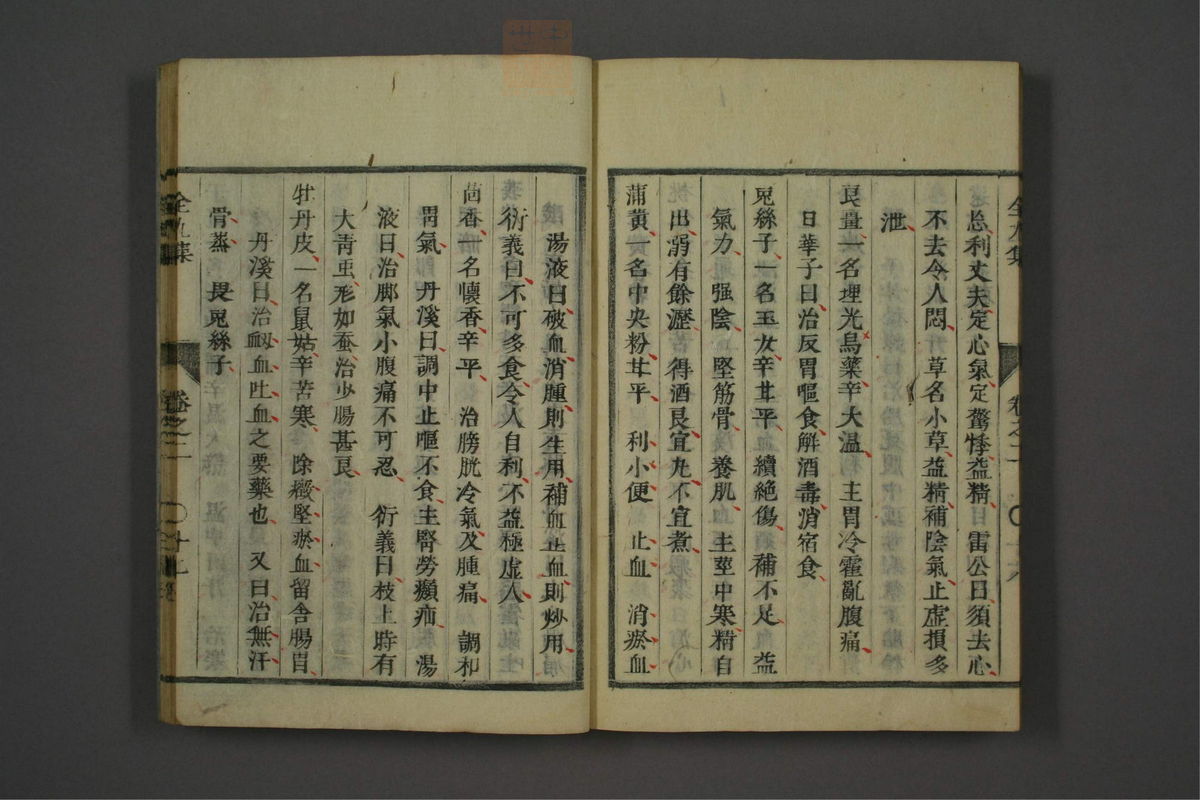 忘利丈夫定心氣定驚悸益精 雷公曰須去心
不去令人悶 草名小草益精補陰氣止虛損多
泄
良薑一名埋光烏藥辛大温 主胃冷霍亂腹痛
日華子曰治反胃嘔食解酒毒消宿食
兎絲子一名玉女辛甘平 續絶傷 補不足 益
氣力 强陰 堅筋骨 養肌 主莖中寒精自
出溺有餘瀝 得酒良宜丸不宜煮
蒲黄一名中央粉甘平 利小便 止血 消瘀血
湯液曰破血消腫則生用補血止血則炒用
衍義曰不可多食令人自利不益極虛人
茴香一名懷香辛平 治膀胱冷氣及腫痛 調和
胃氣 丹溪曰調中止嘔不食主腎勞㿗疝 湯
液曰治脚氣小腹痛不可忍 衍義曰枝上時有
大青虫形如蚕治少腸甚良
牡丹皮一名鼠姑辛苦寒 除癥堅瘀血留舎腸胃
丹溪曰治衂血吐血之要藥也 又曰治無汗
骨蒸 畏兎絲子
全九集 卷之二 〇十七